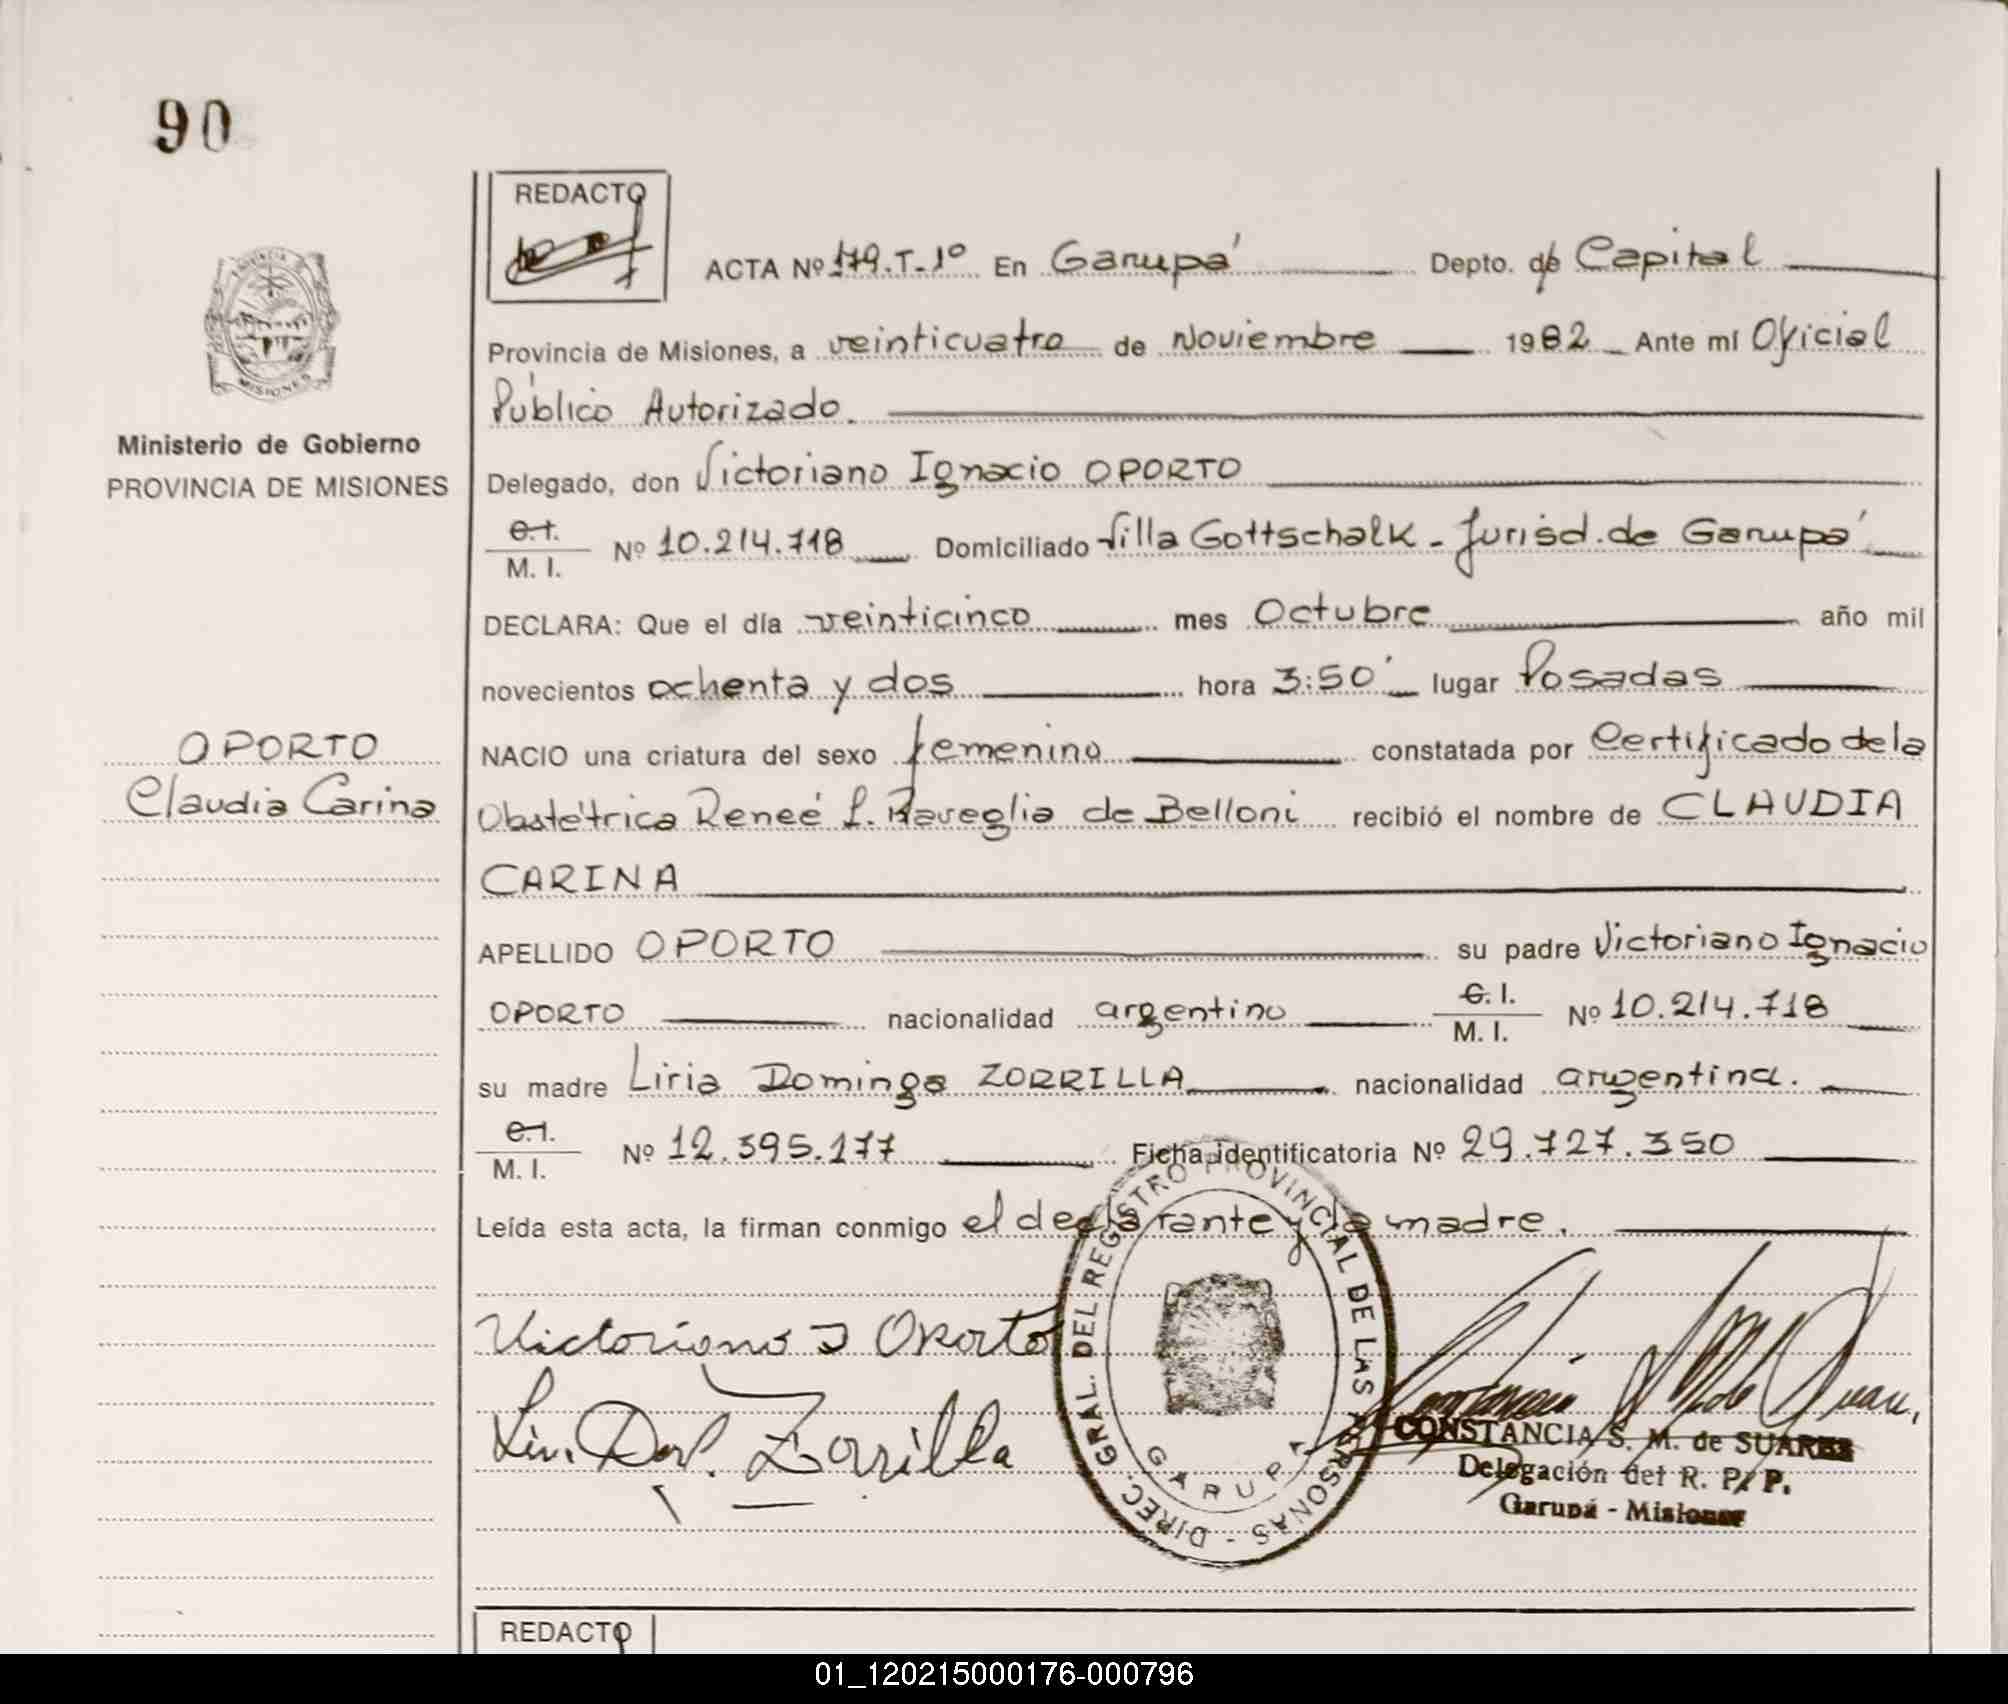 90
REDACTO
ACTA Nº 179.T-1º En Garupá Depto. de Capital
PROVINCIA
MISIONES
Provincia de Misiones, a veinticuatro de Noviembre 1982 Ante mí Oficial
Público Autorizado.
Ministerio de Gobierno
PROVINCIA DE MISIONES
Delegado, don Victoriano Ignacio OPORTO
C.I.
M. I. Nº 10.214.718 Domiciliado Villa Gottschalk - Jurisd. de Garupá
DECLARA: Que el día veinticinco mes Octubre año mil
novecientos ochenta y dos hora 3:50' lugar Posadas
OPORTO
Claudia Carina
NACIO una criatura del sexo femenino constatada por Certificado de la
Obstétrica Reneé L. Raveglia de Belloni recibió el nombre de CLAUDIA
CARINA
APELLIDO OPORTO su padre Victoriano Ignacio
OPORTO nacionalidad argentino C.I. M. I. Nº 10.214.718
su madre Liria Dominga ZORRILLA nacionalidad argentina.
C.I.
M. I. Nº 12.395.177 Ficha identificatoria Nº 29.727.350
Leída esta acta, la firman conmigo el declarante y la madre.
Victoriano I Oporto
Zorrilla
DIREC. GRAL. DEL REGISTRO PROVINCIAL DE LAS PERSONAS -
GARUPA
CONSTANCIA S. M. de SUAREZ
Delegación del R. P. P.
Garupá - Misiones
REDACTO
01_120215000176-000796